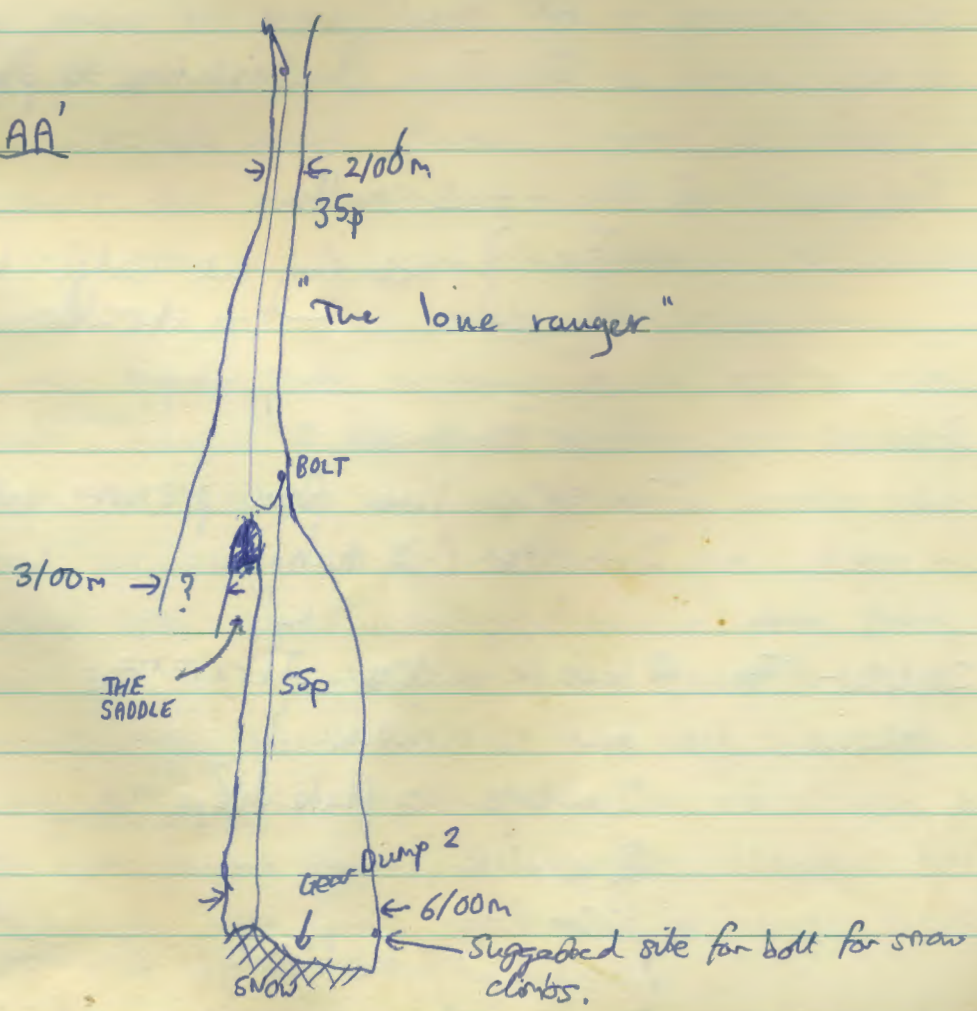 AA'
2/00m
35p
"The lone ranger"
BOLT
3/00m
?
THE
SADDLE
55p
Gear Dump 2
6/00m
Suggested site for bolt for snow
climbs.
SNOW